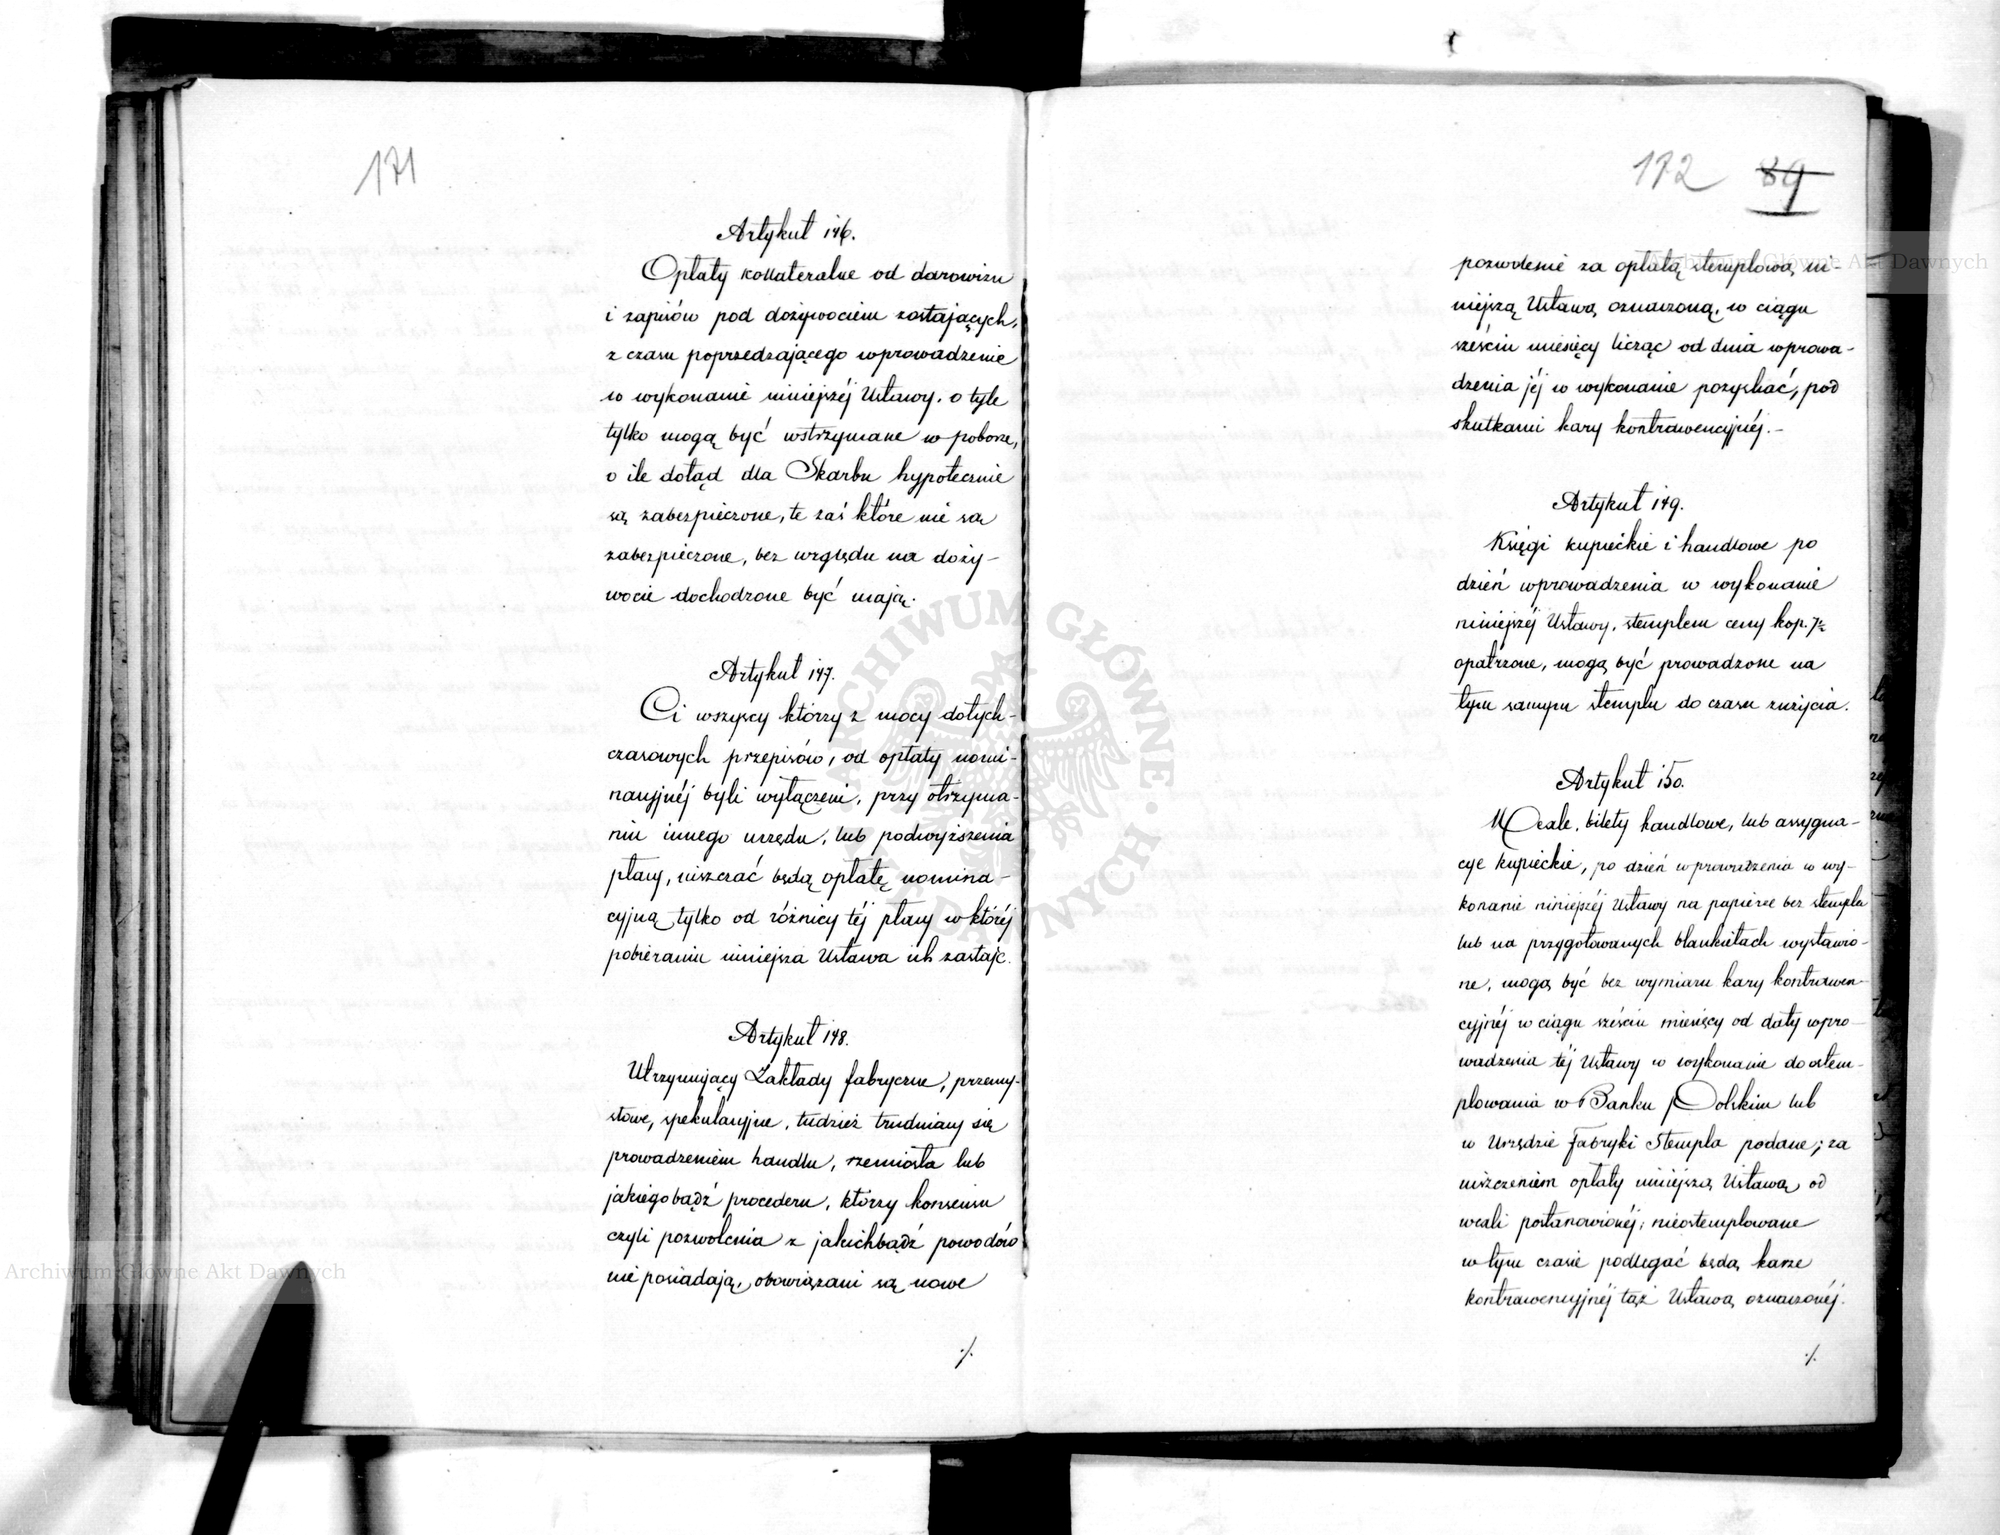 171
Artykuł 146.
Opłaty kollateralne od darowizn
i zapisów pod dożywociem zostających,
z czasu poprzedzającego wprowadzenie
w wykonanie niniejszéj Ustawy, o tyle
tylko mogą być wstrzymane w poborze,
o ile dotąd dla Skarbu hypotecznie
są zabezpieczone, te zaś które nie są
zabezpieczone, bez względu na doży-
wocie dochodzone być mają.
Artykuł 147.
Ci wszyscy którzy z mocy dotych-
czasowych przepisów, od opłaty nomi-
nacyjnéj byli wyłączeni, przy otrzyma-
niu innego urzędu, lub podwyższenia
płacy, uiszczać będą opłatę nomina-
cyjną tylko od różnicy téj płacy w któréj
pobieraniu niniejsza Ustawa ich zastaje.
Artykuł 148.
Utrzymujący Zakłady fabryczne, przemy-
słowe, spekulacyjne, tudzież trudniący się
prowadzeniem handlu, rzemiosła lub
jakiegobądź procederu, którzy konsensu
czyli pozwolenia z jakichbądź powodów
nie posiadają, obowiązani są nowe
./.
172 89
pozwolenie za opłatą stemplową ni-
niejszą Ustawą oznaczoną, w ciągu
sześciu miesięcy licząc od dnia wprowa-
dzenia jéj w wykonanie pozyskać, pod
skutkami kary kontrawencyjnéj.-
Artykuł 149.
Księgi kupieckie i handlowe po
dzień wprowadzenia w wykonanie
niniejszéj Ustawy, stemplem ceny kop. 7½
opatrzone, mogą być prowadzone na
tym samym stemplu do czasu zużycia.
Artykuł 150.
Wexle, bilety handlowe, lub assygna-
cye kupieckie, po dzień wprowadzenia w wy-
konanie niniejszéj Ustawy na papierze bez stempla
lub na przygotowanych blankietach wystawio-
ne, mogą być bez wymiaru kary kontrawen-
cyjnéj w ciągu sześciu miesięcy od daty wpro-
wadzenia téj Ustawy w wykonanie do ostem-
plowania w Banku Polskim lub
w Urzędzie Fabryki Stempla podane; za
uiszczeniem opłaty niniejszą Ustawą od
wexli postanowionéj; nieostemplowane
w tym czasie podlegać będą karze
kontrawencyjnéj tąż Ustawą oznaczonéj.
./.
Archiwum Główne Akt Dawnych
Archiwum Główne Akt Dawnych
ARCHIWUM GŁÓWNE AKT DAWNYCH